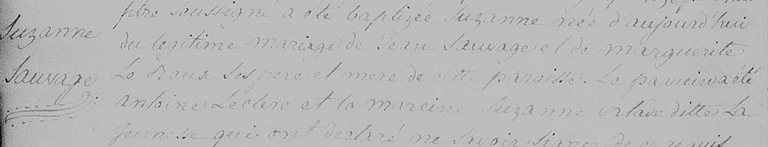 ptre soussigné a été baptizée Suzanne née d'aujourd'hui
Suzanne
du légitime mariage de Jean Sauvage et de marguerite
Sauvage
Le Roux ses pere et mere de cette paroisse. Le parein a été
antoine Leclerc et la mareine Suzanne valade ditte La
Jeunesse qui ont déclaré ne savoir signer de ce requis